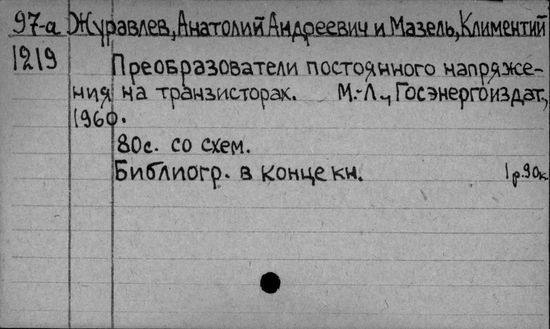 97-а Журавлев, Анатолий Андреевич и Мазель, Климентий
1219
Преобразователи постоянного напряже-
ния на транзисторах. М.-Л., Госэнергоиздат,
1960.
80с. со схем.
Библиогр. в конце кн. 1р.90к.